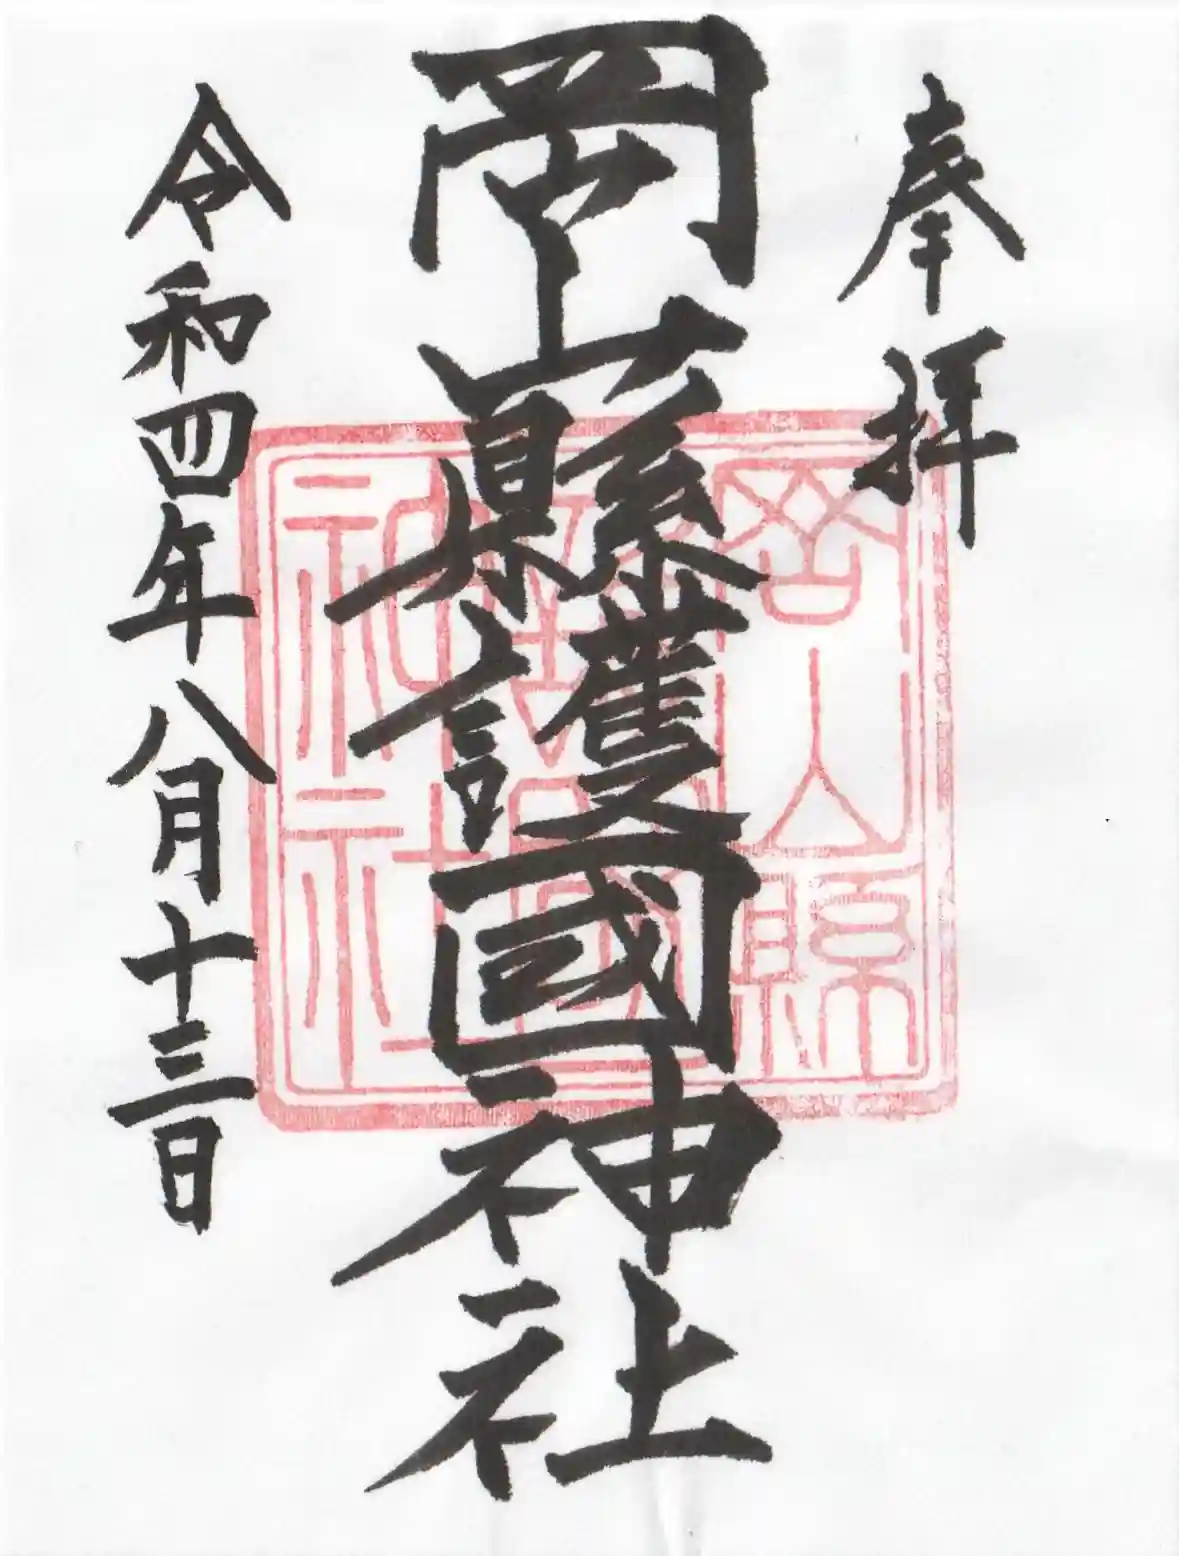 奉拝
岡山縣護國神社
岡山縣護國神社
令和四年八月十三日